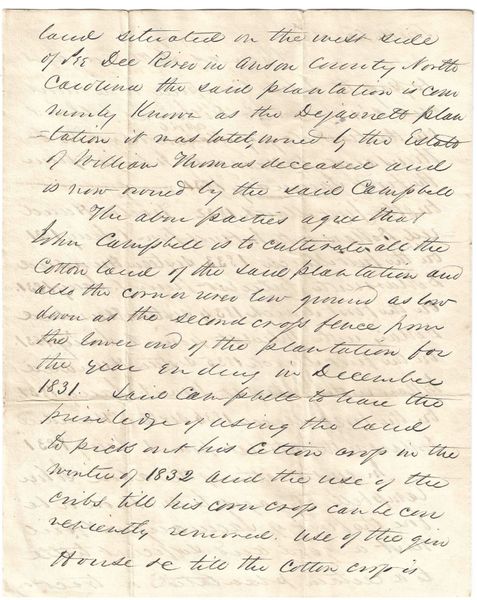 land situated on the west side
of Pee Dee River in Anson County North
Carolina the said plantation is com
monly Known as the Dejarnett plan
-tation it was lately owned by the Estate
of William Thomas deceased and
is now owned by the said Campbell
The above parties agree that
John Campbell is to cultivate all the
Cotton land of the said plantation and
also the corn or river low ground as low
down as the second cross fence from
the lower end of the plantation for
the year Ending in December
1831. Said Campbell to have the
priviledge of using the land
to pick out his Cotton crop in the
winter of 1832 and the use of the
cribs till his corn crop can be con
veniently removed. Use of the gin
House &c till the Cotton crop is